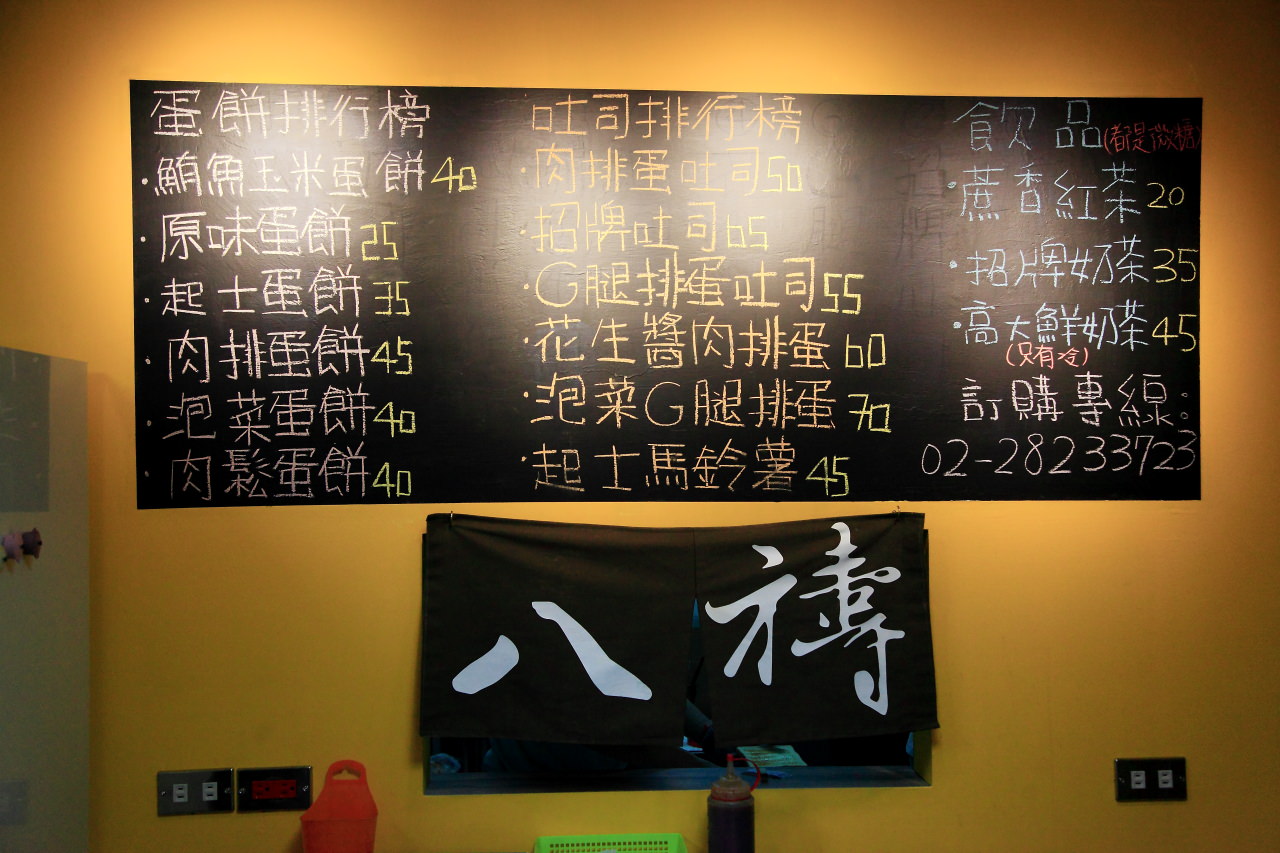 蛋餅排行榜
·鮪魚玉米蛋餅40
·原味蛋餅25
·起士蛋餅35
·肉排蛋餅45
·泡菜蛋餅40
·肉鬆蛋餅40
吐司排行榜
·肉排蛋吐司50
·招牌吐司65
·G腿排蛋吐司55
·花生醬肉排蛋60
·泡菜G腿排蛋70
·起士馬鈴薯45
飲品(都是微糖)
·蔗香紅茶20
·招牌奶茶35
·高大鮮奶茶45
(只有冷)
訂購專線:
02-28233723
八